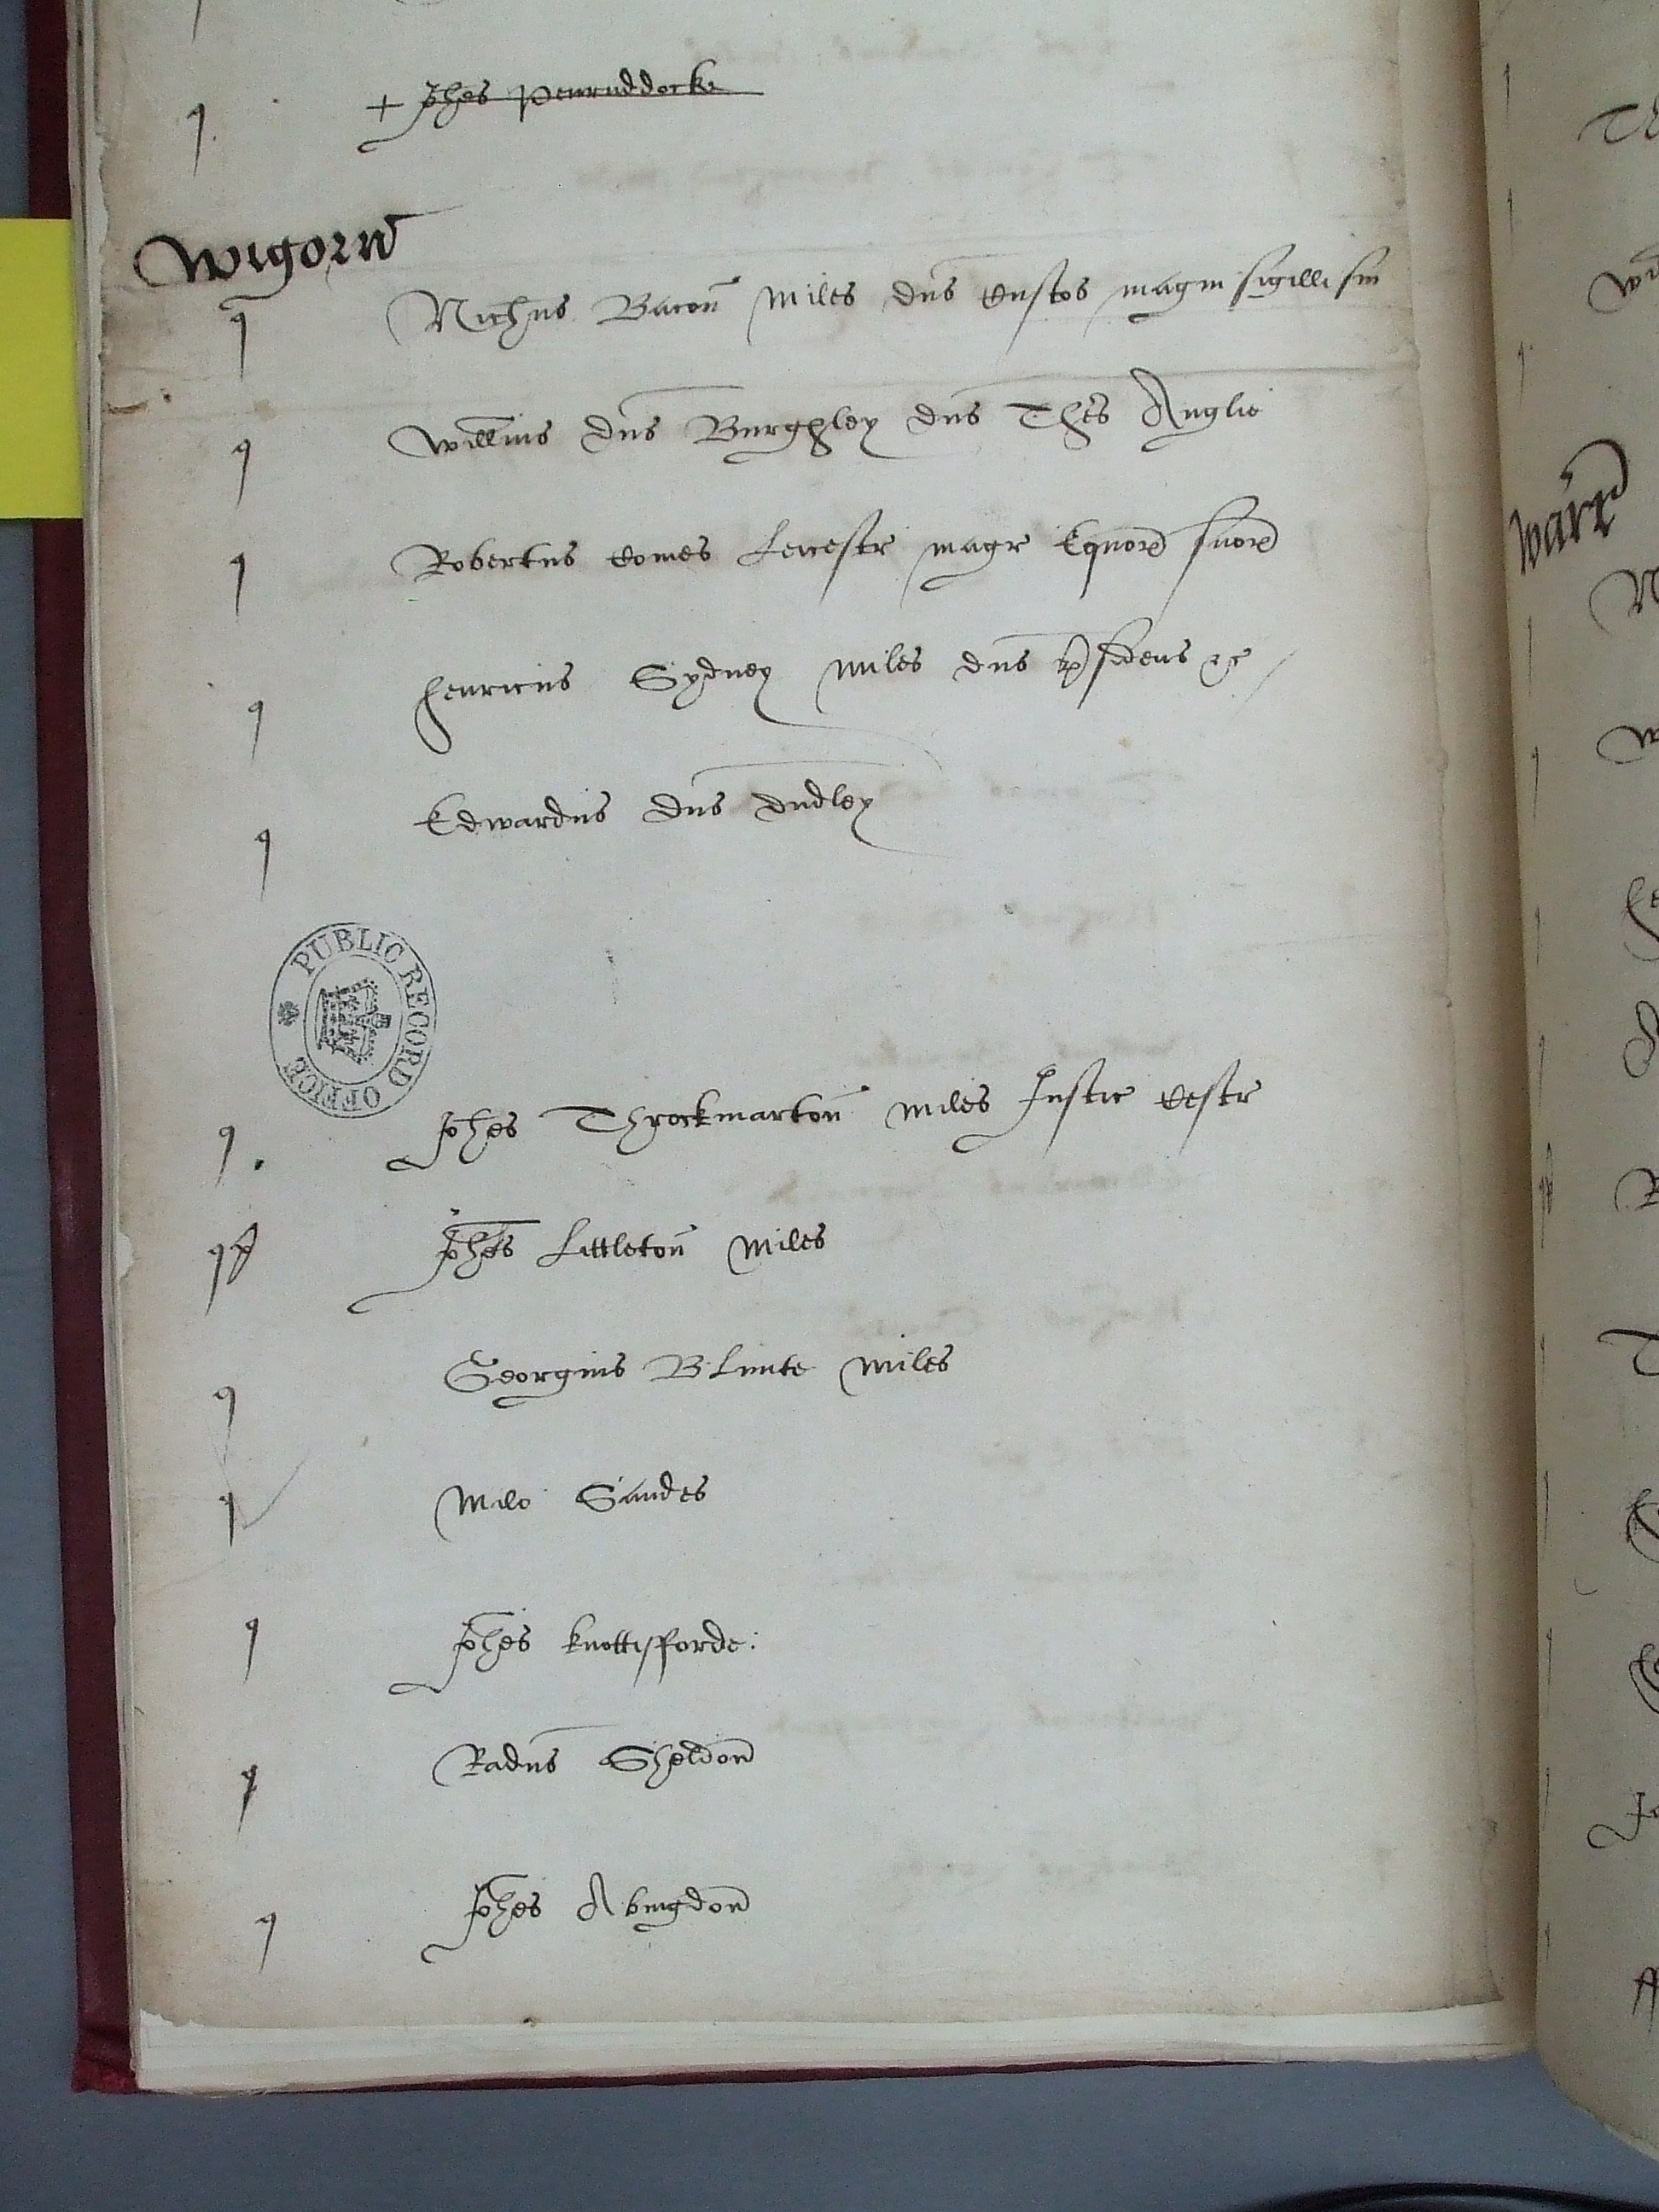 + Johes Penruddocke
Wigorn
Nichus Bacon Miles dns Custos magni sigilli sui
Willmus dns Burghley dns Thes Anglie
Robertus Comes Leicestr magr Equor suor
Henricus Sydney Miles dns psidens &c
Edwardus dns Dudley
PUBLIC RECORD OFFICE
Johes Throckmarton Miles Justic Cestr
Johes Littleton Miles
Georgius Blunte Miles
Milo Sandes
Johes Knottisfforde:
Radus Sheldon
Johes Abingdon
Warr